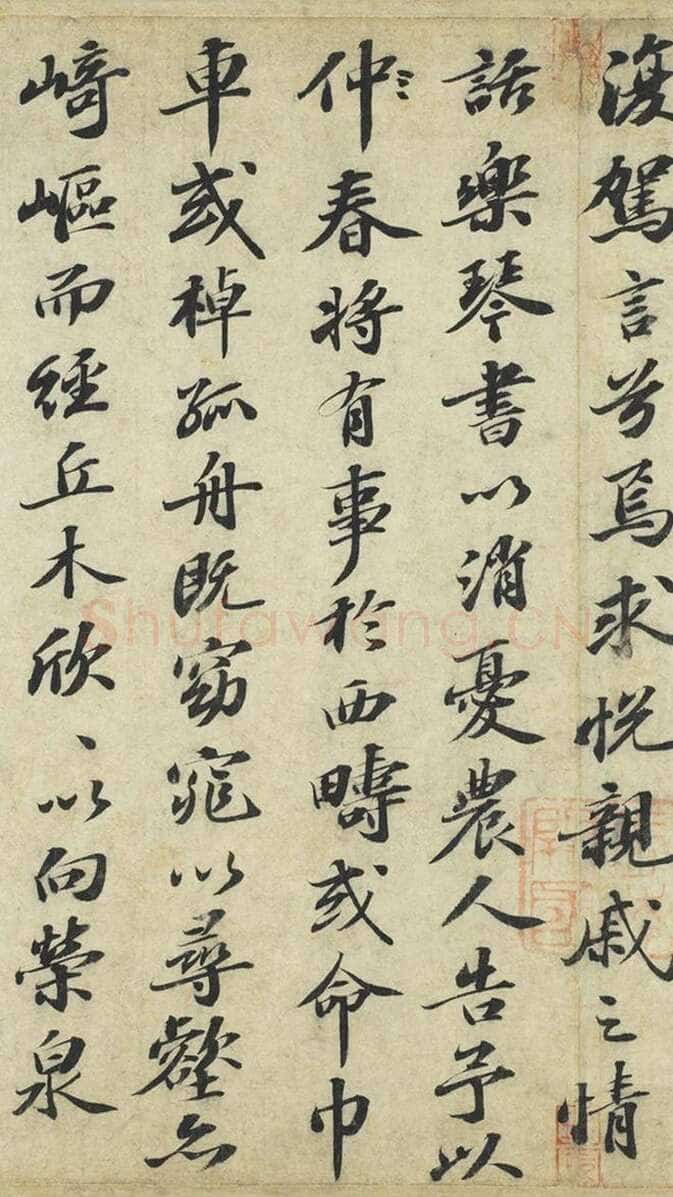 復駕言兮焉求悅親戚之情
話樂琴書以消憂農人告予以
仲春將有事於西疇或命巾
車或棹孤舟既窈窕以尋壑亦
崎嶇而經丘木欣、以向榮泉
Shufawang.CN